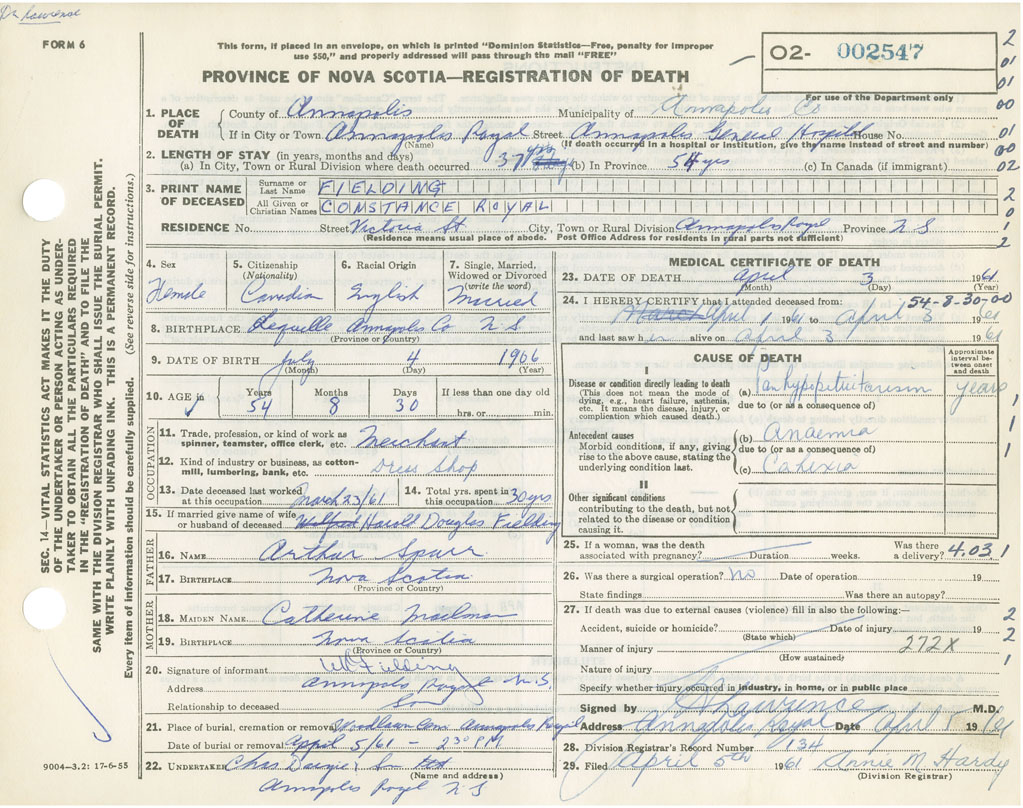 Dr Lawrence
FORM 6
This form, if placed in an envelope, on which is printed "Dominion Statistics—Free, penalty for improper
use $50," and properly addressed will pass through the mail "FREE"
PROVINCE OF NOVA SCOTIA—REGISTRATION OF DEATH
O2- 002547
For use of the Department only
2
01
01
00
01
00
02
2
0
1
2
1. PLACE OF DEATH
County of Annapolis Municipality of Annapolis Co
If in City or Town Annapolis Royal Street Annapolis General Hospital House No.
(Name) (If death occurred in a hospital or institution, give the name instead of street and number)
2. LENGTH OF STAY (in years, months and days)
(a) In City, Town or Rural Division where death occurred 37 yrs (b) In Province 54 yrs (c) In Canada (if immigrant)
3. PRINT NAME OF DECEASED
Surname or Last Name FIELDING
All Given or Christian Names CONSTANCE ROYAL
RESIDENCE No. Street Victoria St City, Town or Rural Division Annapolis Royal Province N S
(Residence means usual place of abode. Post Office Address for residents in rural parts not sufficient)
4. Sex
Female
5. Citizenship
(Nationality)
Canadian
6. Racial Origin
English
7. Single, Married,
Widowed or Divorced
(write the word)
Married
8. BIRTHPLACE Lequille Annapolis Co N S
(Province or Country)
9. DATE OF BIRTH July 4 1906
(Month) (Day) (Year)
10. AGE in
Years Months Days If less than one day old
54 8 30 hrs. or min.
OCCUPATION
11. Trade, profession, or kind of work as
spinner, teamster, office clerk, etc. Merchant
12. Kind of industry or business, as cotton-
mill, lumbering, bank, etc. Dress Shop
13. Date deceased last worked
at this occupation March 23/61
14. Total yrs. spent in
this occupation 30 yrs
15. If married give name of wife
or husband of deceased Harold Douglas Fielding
FATHER
16. NAME Arthur Spurr
17. BIRTHPLACE Nova Scotia
(Province or Country)
MOTHER
18. MAIDEN NAME Catherine Mailman
19. BIRTHPLACE Nova Scotia
(Province or Country)
20. Signature of informant Fielding
Address Annapolis Royal N.S.
Relationship to deceased Son
21. Place of burial, cremation or removal Woodlawn Cem. Annapolis Royal
Date of burial or removal April 5/61 - 2 30 PM
22. UNDERTAKER Chas. & Son
(Name and address)
Annapolis Royal N S
9004—3.2: 17-6-55
MEDICAL CERTIFICATE OF DEATH
23. DATE OF DEATH April 3 1961
(Month) (Day) (Year)
54-8-30-00
24. I HEREBY CERTIFY that I attended deceased from:
March April 1 1961 to April 3 1961
and last saw her alive on April 3 1961
CAUSE OF DEATH
Approximate
interval be-
tween onset
and death
I
Disease or condition directly leading to death
(This does not mean the mode of
dying, e.g., heart failure, asthenia,
etc. It means the disease, injury, or
complication which caused death.)
(a) Panhypopituitarism years
due to (or as a consequence of)
Antecedent causes
Morbid conditions, if any, giving
rise to the above cause, stating the
underlying condition last.
(b) Anaemia
due to (or as a consequence of)
(c) Cahexia
II
Other significant conditions
contributing to the death, but not
related to the disease or condition
causing it.
1
1
1
25. If a woman, was the death
associated with pregnancy? Duration weeks.
Was there
a delivery? 4.03 1
26. Was there a surgical operation? No Date of operation 19
State findings Was there an autopsy?
27. If death was due to external causes (violence) fill in also the following:—
Accident, suicide or homicide? Date of injury 19
(State which)
Manner of injury 272X
(How sustained)
Nature of injury
Specify whether injury occurred in industry, in home, or in public place
2
2
1
Signed by Lawrence M.D.
Address Annapolis Royal Date April 1961
28. Division Registrar's Record Number 134
29. Filed April 5th 1961 Annie M. Hardy
(Division Registrar)
SEC. 14—VITAL STATISTICS ACT MAKES IT THE DUTY
OF THE UNDERTAKER OR PERSON ACTING AS UNDER-
TAKER TO OBTAIN ALL THE PARTICULARS REQUIRED
IN THE "REGISTRATION OF DEATH" AND FILE THE
SAME WITH THE DIVISION REGISTRAR WHO SHALL ISSUE THE BURIAL PERMIT.
WRITE PLAINLY WITH UNFADING INK. THIS IS A PERMANENT RECORD.
Every item of information should be carefully supplied. (See reverse side for instructions.)